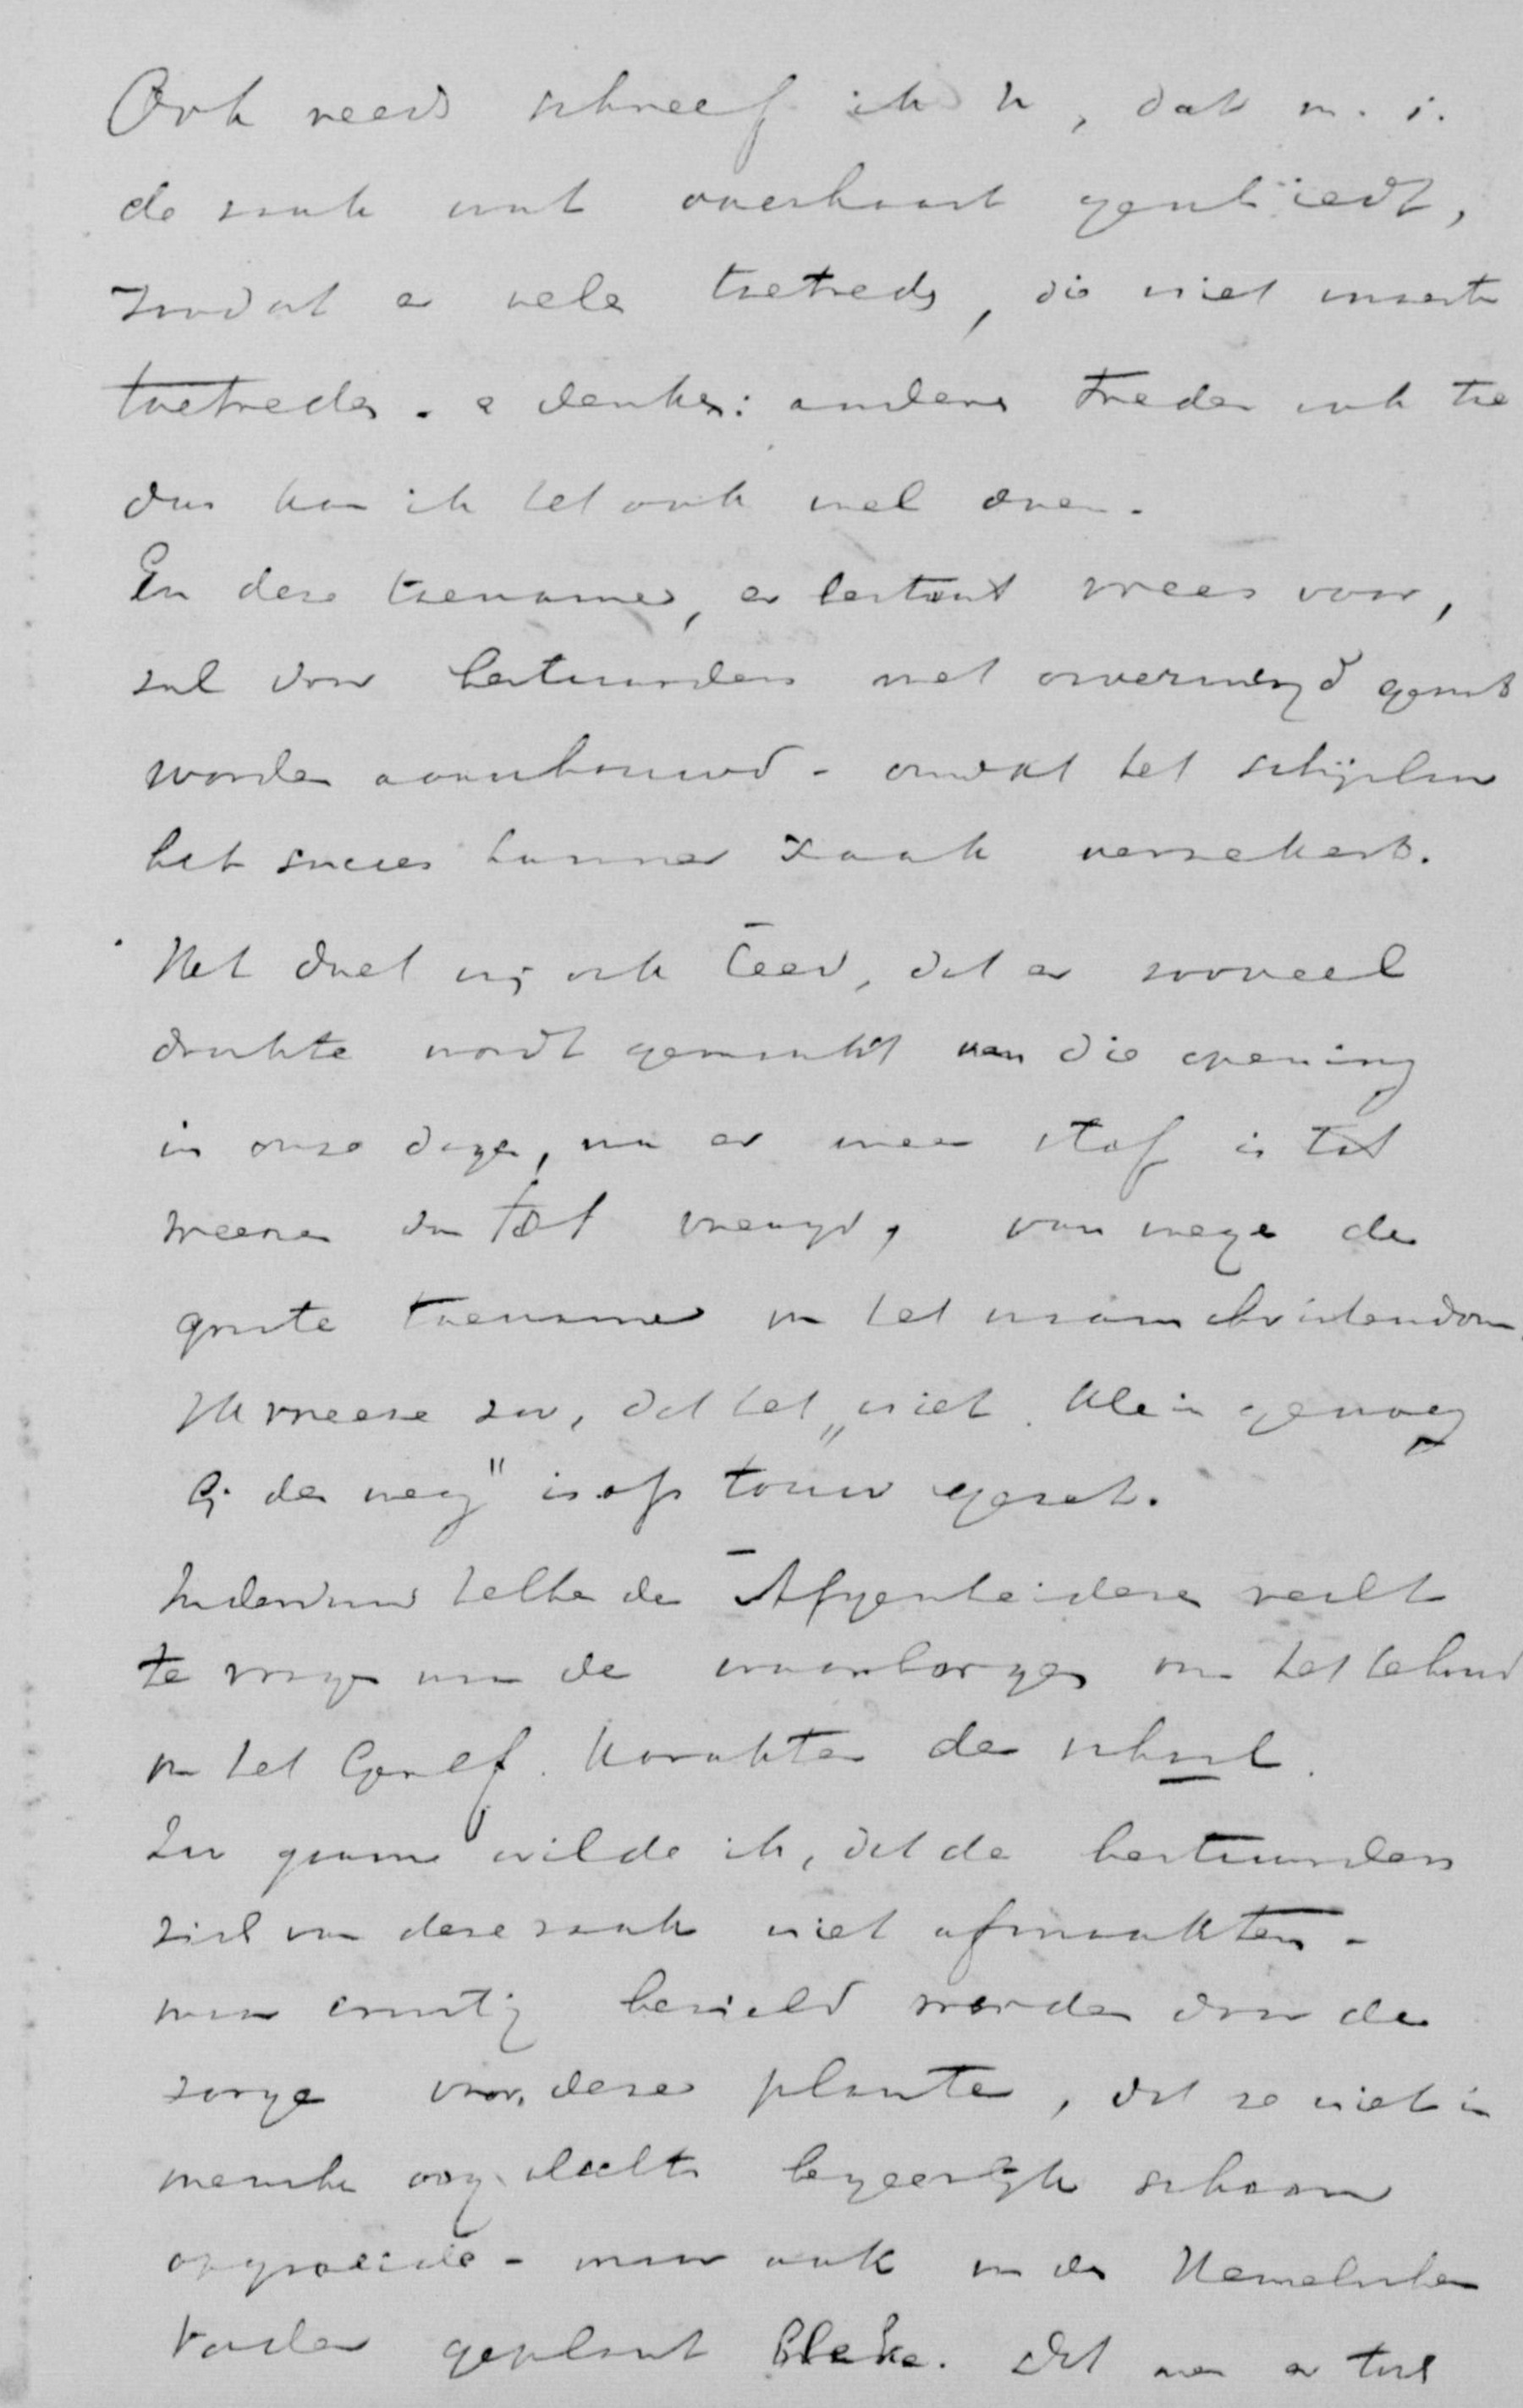 Ook reeds schreef ik U, dat m. i.
de zaak wat overhaast geschiedt,
zoodat er vele toetreden, die niet moesten
toetreden. en denken: anderen treden ook toe
dus kan ik het ook wel doen.
En deze toename, er bestaat vrees voor,
zal door bestuurders met onvermengd genot
worden aanschouwd - omdat het schijnbaar
het succes hunner zaak verzekert.
Het doet mij ook leed, dat er zooveel
drukte wordt gemaakt van die opening
in onze dagen, nu er meer stof is tot
weenen dan tot vreugde, van wege de
groote toename van het naam christendom.
Ik vreese zoo, dat het "niet klein genoeg
bij den weg" is op touw gezet.
Inderdaad hebben de Afgescheidenen recht
te vragen naar de waarborgen van het behoud
van het Geref. karakter der school.
Zoo gaarne wilde ik, dat de bestuurders
zich van deze zaak niet afmaakten -
maar ernstig bezield werden door de
zorge voor deze planten, dat ze niet in
menschen oog slechts begeerlijk schoon
opgroeide - maar ook van den Hemelschen
Vader geplant bleke. dat men er toch